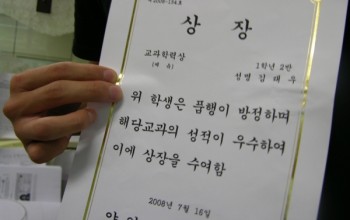 상 장
교과학력상
1학년 2반
성명 김태우
위 학생은 품행이 방정하며
해당교과의 성적이 우수하여
이에 상장을 수여함
2008년 7월 16일